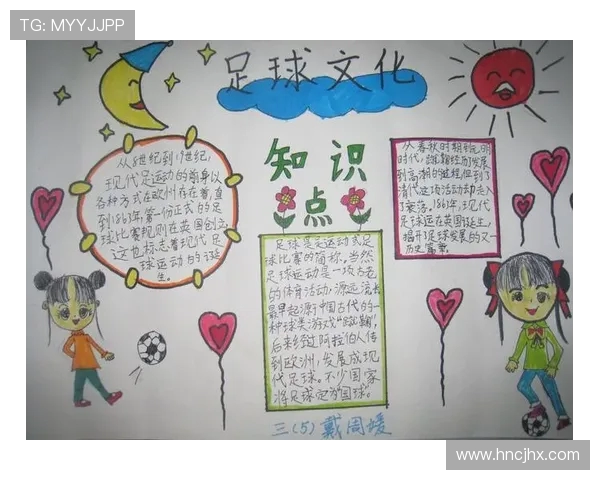 TG: MYYJJPP
足球文化
从8世纪到19世纪,
现代足运动的前身以
各种方式在欧州存在着,直
到1863年,第一份正式的足
球比赛规则在英国创立,
这也标志着现代足
球运动的诞
生。
知识
点
足球是足运动或足
球比赛的简称。当然
足球运动是一项古老
的体育活动,源远流长
最早起源于中国古代的一
种球类游戏“蹴鞠”,
后来经过阿拉伯人传
到欧洲,发展成现
代足球。不少国家
将足球定为“国球。
从春秋时期到元明
时代,蹴鞠经历发展
到高潮的进程,但到了
清代这项活动却走入
了衰落。1863年,现代
足球运在英国诞生,
揭开了足球发展的又一
历史篇章。
三(5)戴周媛
www.hncjhx.com